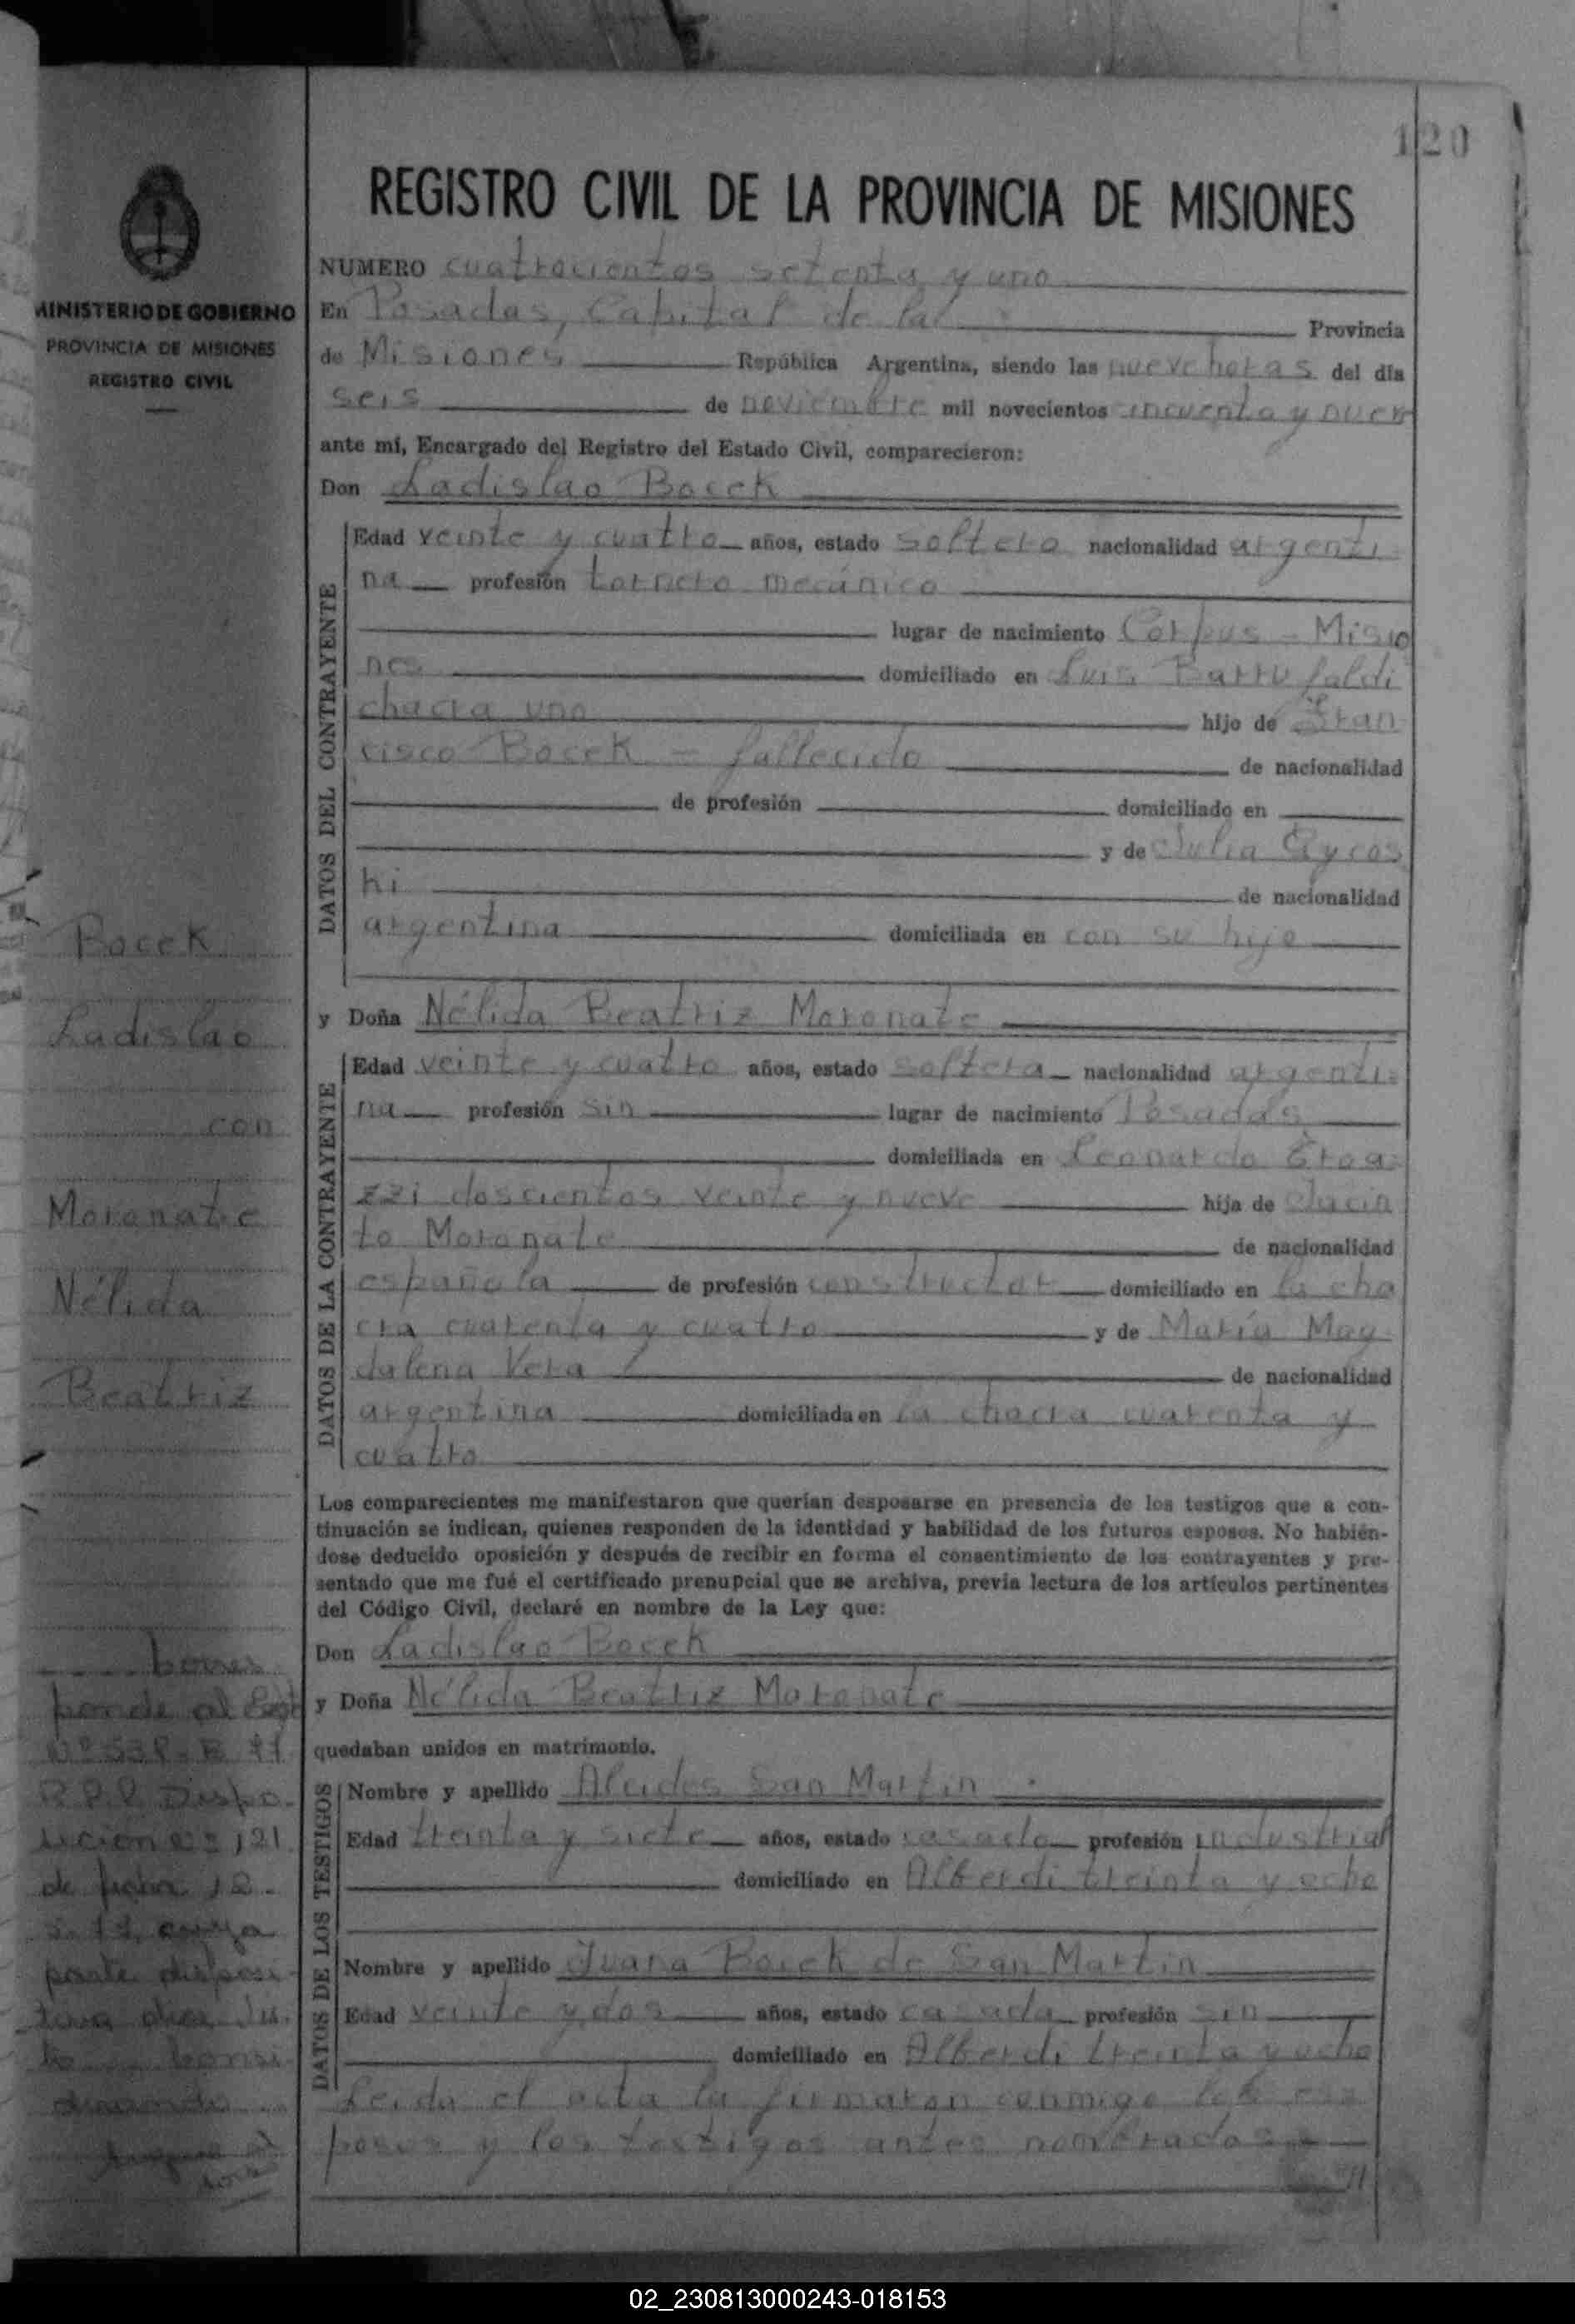 120
MINISTERIO DE GOBIERNO
PROVINCIA DE MISIONES
REGISTRO CIVIL
REGISTRO CIVIL DE LA PROVINCIA DE MISIONES
NUMERO cuatrocientos setenta y uno
En Posadas, Capital de la Provincia
de Misiones República Argentina, siendo las nueve horas del día
seis de noviembre mil novecientos cincuenta y nueve
ante mí, Encargado del Registro del Estado Civil, comparecieron:
Don Ladislao Bocek
DATOS DEL CONTRAYENTE
Edad veinte y cuatro años, estado soltero nacionalidad argenti
na profesión tornero mecánico
lugar de nacimiento Corpus - Misio
nes domiciliado en Luis Barrufaldi
chacra uno hijo de Fran
cisco Bocek - fallecido de nacionalidad
de profesión domiciliado en
y de Julia
hi de nacionalidad
argentina domiciliada en con su hijo
y Doña Nélida Beatriz Moronate
DATOS DE LA CONTRAYENTE
Edad veinte y cuatro años, estado soltera nacionalidad argenti-
na profesión sin lugar de nacimiento Posadas
domiciliada en Leonardo
zzi doscientos veinte y nueve hija de Jacin
to Moronate de nacionalidad
española de profesión constructor domiciliado en la cha
cra cuarenta y cuatro y de María Mag
dalena Vera de nacionalidad
argentina domiciliada en la chacra cuarenta y
cuatro
Los comparecientes me manifestaron que querían desposarse en presencia de los testigos que a con-
tinuación se indican, quienes responden de la identidad y habilidad de los futuros esposos. No habién-
dose deducido oposición y después de recibir en forma el consentimiento de los contrayentes y pre-
sentado que me fué el certificado prenupcial que se archiva, previa lectura de los artículos pertinentes
del Código Civil, declaré en nombre de la Ley que:
Don Ladislao Bocek
y Doña Nélida Beatriz Moronate
quedaban unidos en matrimonio.
DATOS DE LOS TESTIGOS
Nombre y apellido Alcides San Martin
Edad treinta y siete años, estado casado profesión industrial
domiciliado en Alberdi treinta y ocho
Nombre y apellido Juana Bocek de San Martin
Edad veinte y dos años, estado casada profesión sin
domiciliado en Alberdi treinta y ocho
Leida el acta la firmaron conmigo los es
posos y los testigos antes nombrados
Bocek
Ladislao
con
Moronate
Nélida
Beatriz
Corres
ponde al Expt
R.P.P. Dispo-
sición
de fecha 12-
cuya
parte disposi
tiva dice
Consi
02_230813000243-018153